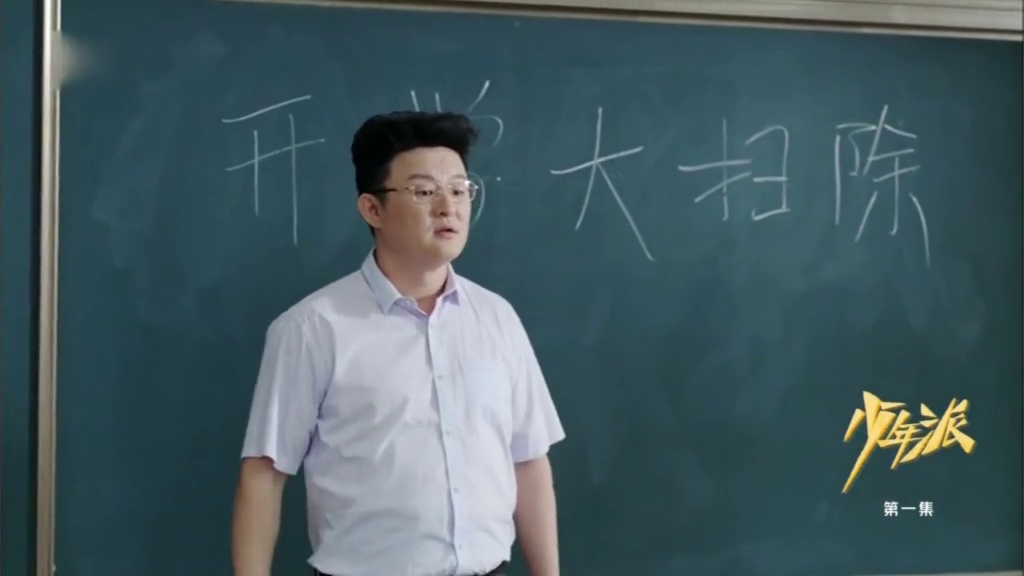 开学大扫除
少年派
第一集